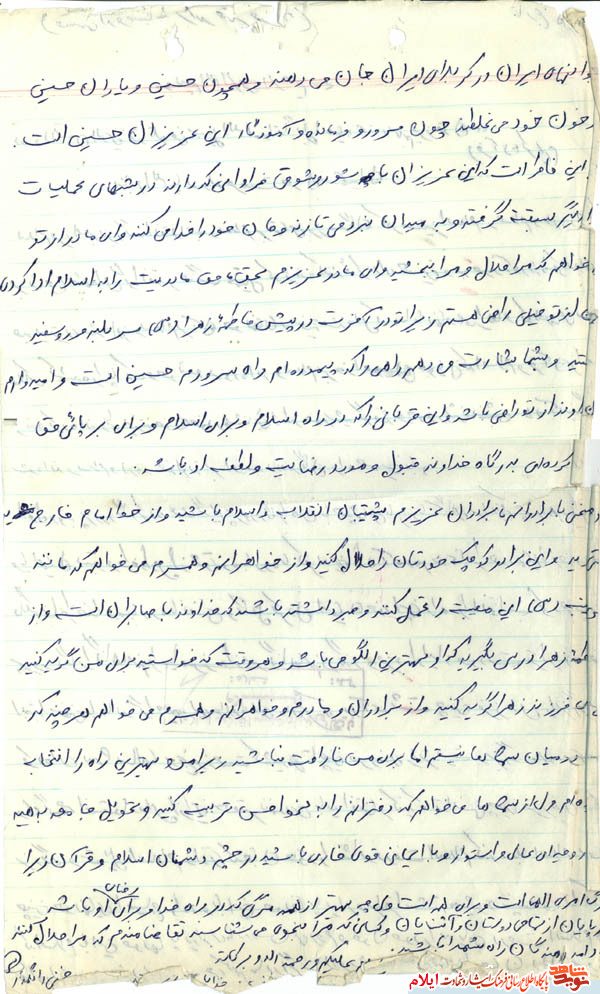 ایران در کربلای ایران جان می دهند و همچون حسین و یاران حسینی
در خون خود می غلطند چون سرور و فرمانده و آموزگار این عزیزان حسین است.
این خاطر است که این عزیزان با شور و شوق فراوانی که دارند در شبهای عملیات
سبقت گرفته و به میدان نبرد می تازند و جان خود را فدا می کنند و ای مادر از تو
می خواهم که مرا حلال و مرا ببخشید و ای مادر عزیزم بحق حق مادریت را به اسلام ادا کردی
از تو خیلی راضی هستم زیرا تو در آخرت در پیش فاطمهٔ زهرا (س) سر بلند و رو سفید
هستید و به شما بشارت می دهم راهی را که پیموده ام راه سرورم حسین است و امیدوارم
خداوند از تو راضی باشد و این قربانی را که در راه اسلام و برای اسلام و برای بر پائی حق
کرده ای به درگاه خداوند قبول و مورد رضایت و لطف او باشد.
ضمن با برادرانم ای برادران عزیزم پشتیبان انقلاب و اسلام باشید و از خط امام خارج
و این برادر کوچک خودتان را حلال کنید و از خواهرانم و همسرم می خواهم که مانند
زینب (س) این مصیبت را تحمل کنند و صبر داشته باشند که خداوند با صابران است و از
فاطمه زهرا درس بگیرید که او بهترین الگو می باشد و هر وقت که خواستید برای من گریه کنید
برای فرزند زهرا گریه کنید و از برادران و مادرم و خواهرانم و همسرم می خواهم هر چند که
در میان شما نیستم اما برای من ناراحت نباشید زیرا من بهترین راه را انتخاب
کرده ام ولی از شما می خواهم که دخترانم را به نحو احسن تربیت کنید و تحویل جامعه بدهید
روحیه ای عالی و استوار و با ایمانی قوی خاری باشید در چشم دشمنان اسلام و قرآن زیرا
مرگ امری الهی است و برای همه است ولی چه بهتر از همه مرگی که در راه خدا و برای رضای او باشد
در پایان از تمامی دوستان و آشنایان و کسانی که مرا بنحوی می شناسند تقاضامندم که مرا حلال کنند
و ادامه دهندگان راه شهدا باشند.
والسلام علیکم و رحمة الله و برکاته
نوید شاهد
پایگاه اطلاع رسانی فرهنگ ایثار و شهادت ایلام